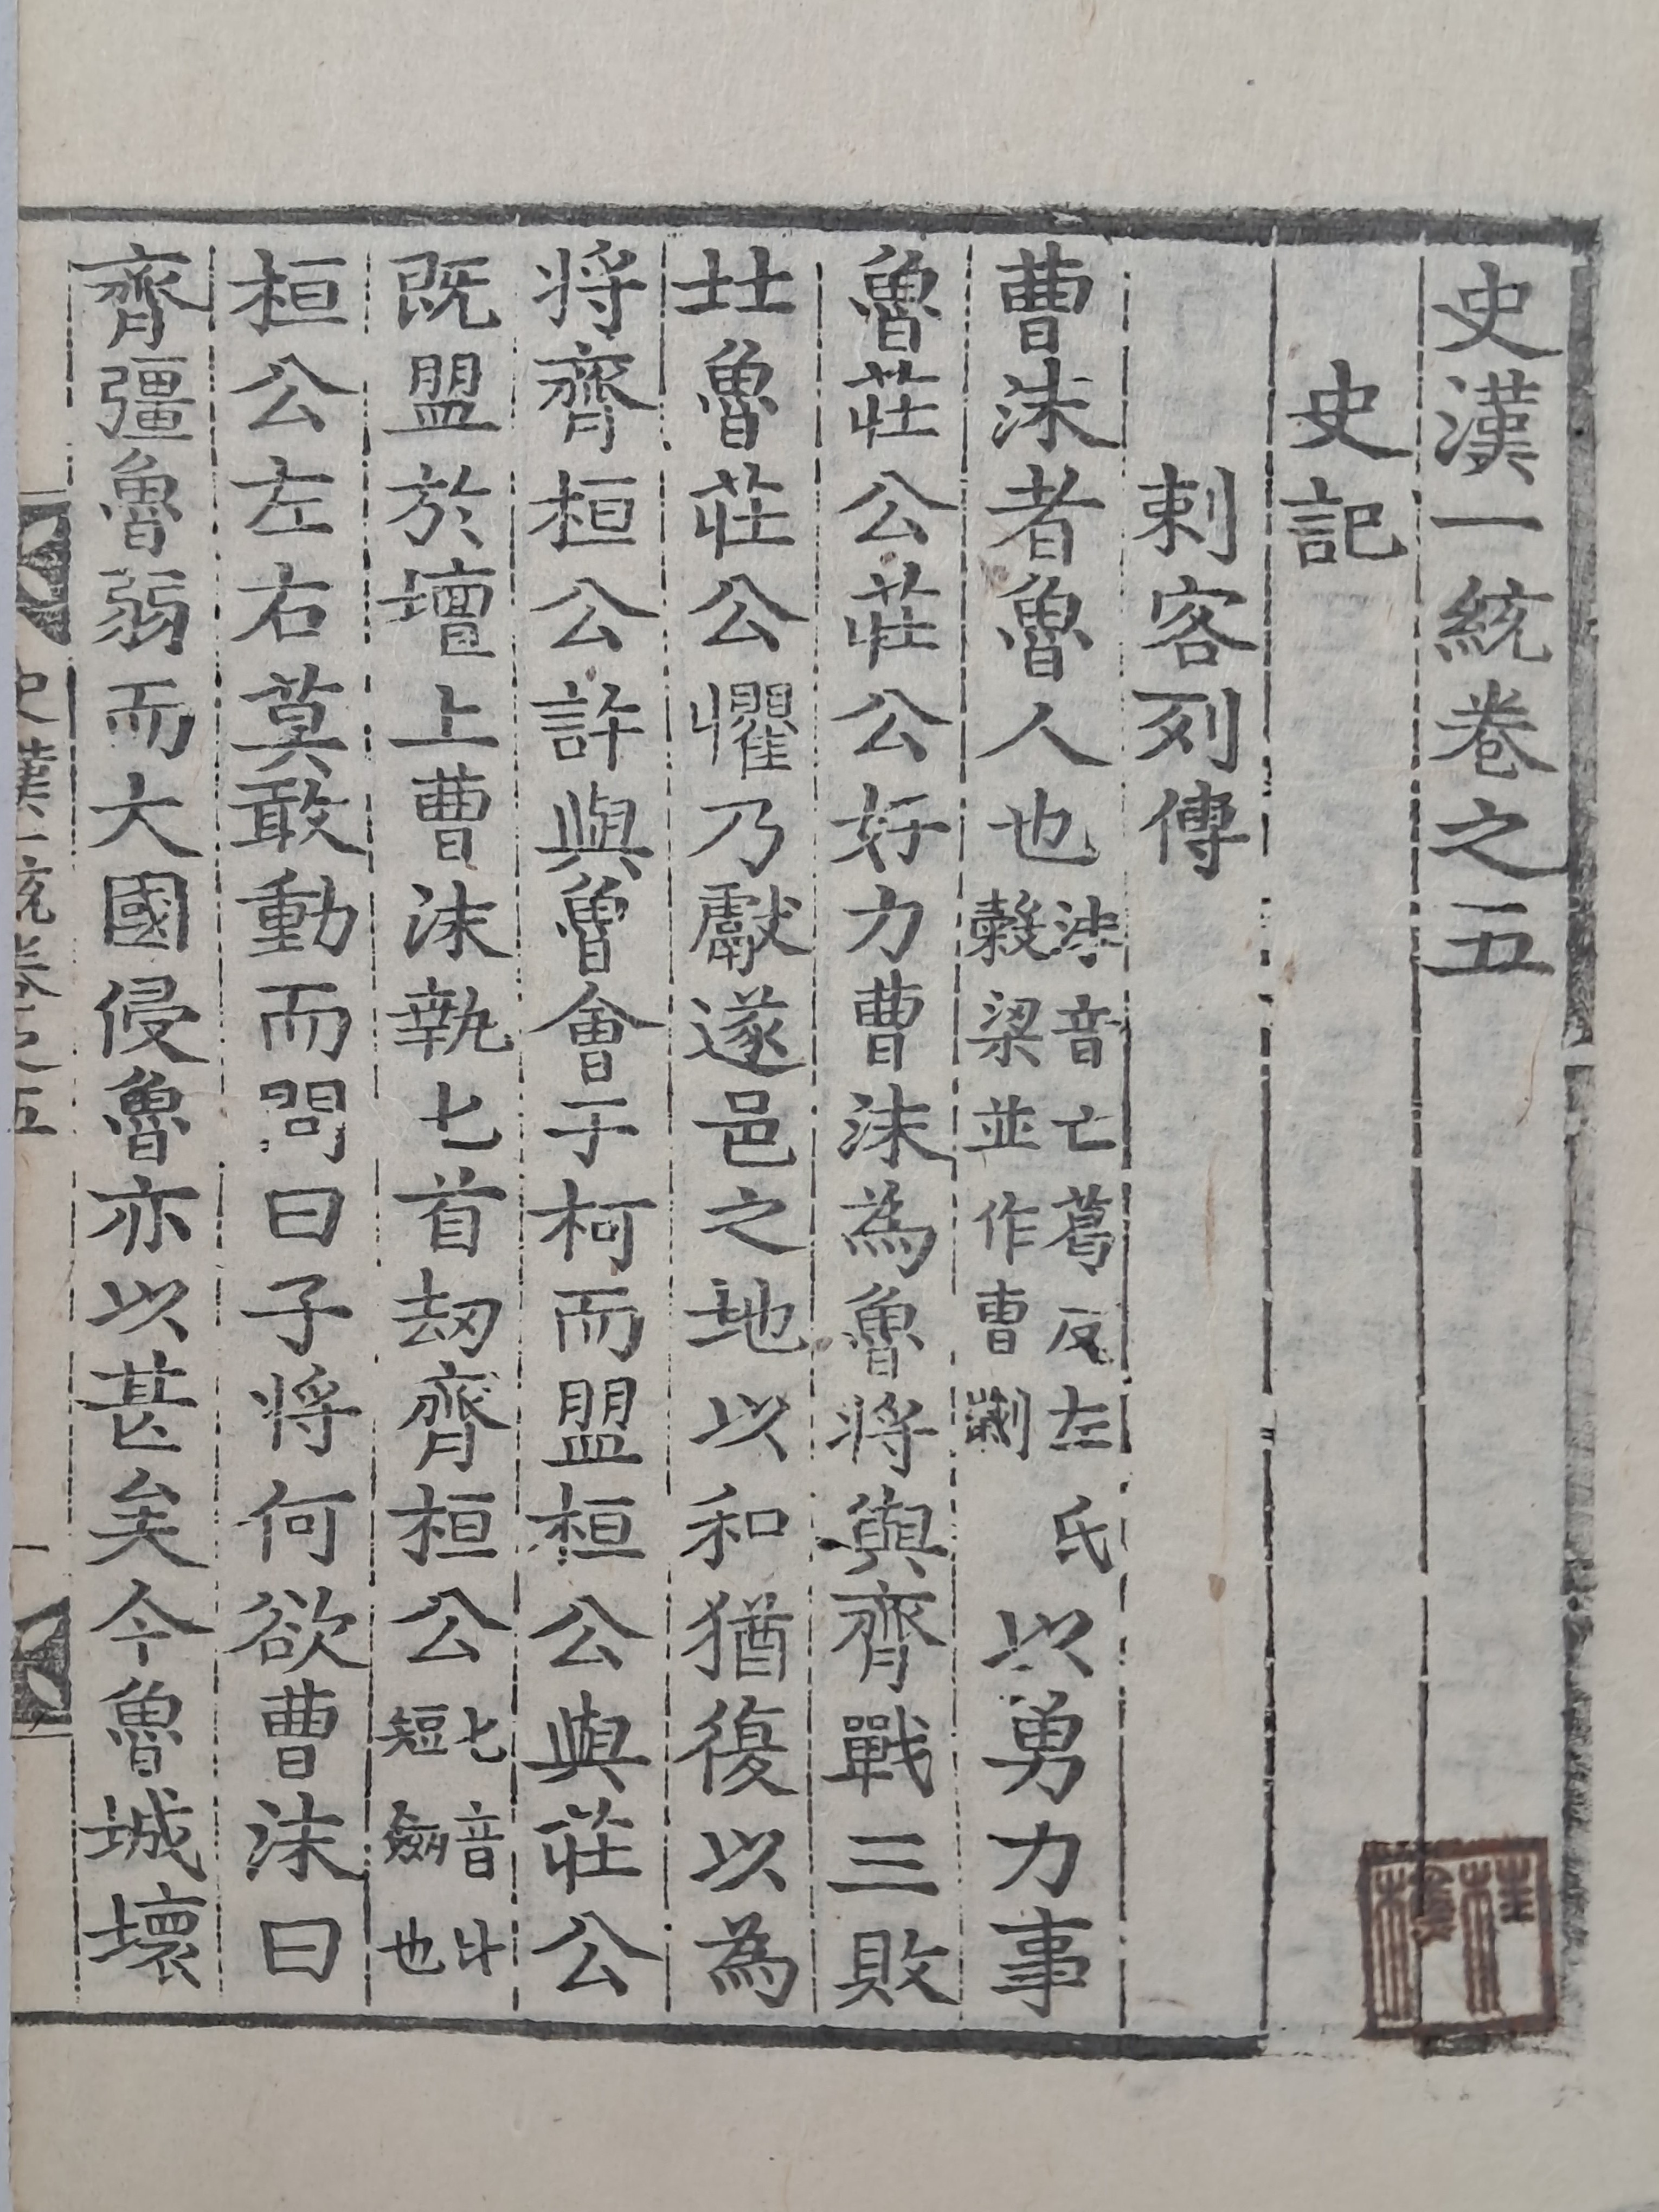 史漢一統卷之五
史記
刺客列傳
曹沫者魯人也沫音亡葛反左氏穀梁並作曹劌以勇力事
魯莊公莊公好力曹沫為魯將與齊戰三敗
北魯莊公懼乃獻遂邑之地以和猶復以為
將齊桓公許與魯會于柯而盟桓公與莊公
既盟於壇上曹沫執匕首劫齊桓公匕音比短劒也
桓公左右莫敢動而問曰子將何欲曹沫曰
齊彊魯弱而大國侵魯亦以甚矣今魯城壞
史漢一統卷之五 一